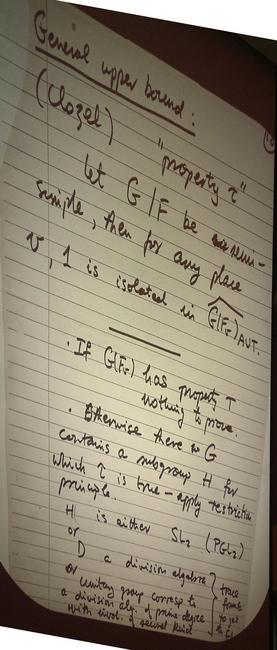 General upper bound:
(Clozel) "property τ"
Let G/F be semi-
simple, then for any place
v, 1 is isolated in G(Fv)AUT.
· If G(Fv) has property T
nothing to prove.
· Otherwise there is G
contains a subgroup H for
which τ is true – apply restriction
principle.
H is either SL2 (PGL2)
or D a division algebra
or unitary group corresp to
a division alg. of prime degree
with invol. of second kind
trace
to get